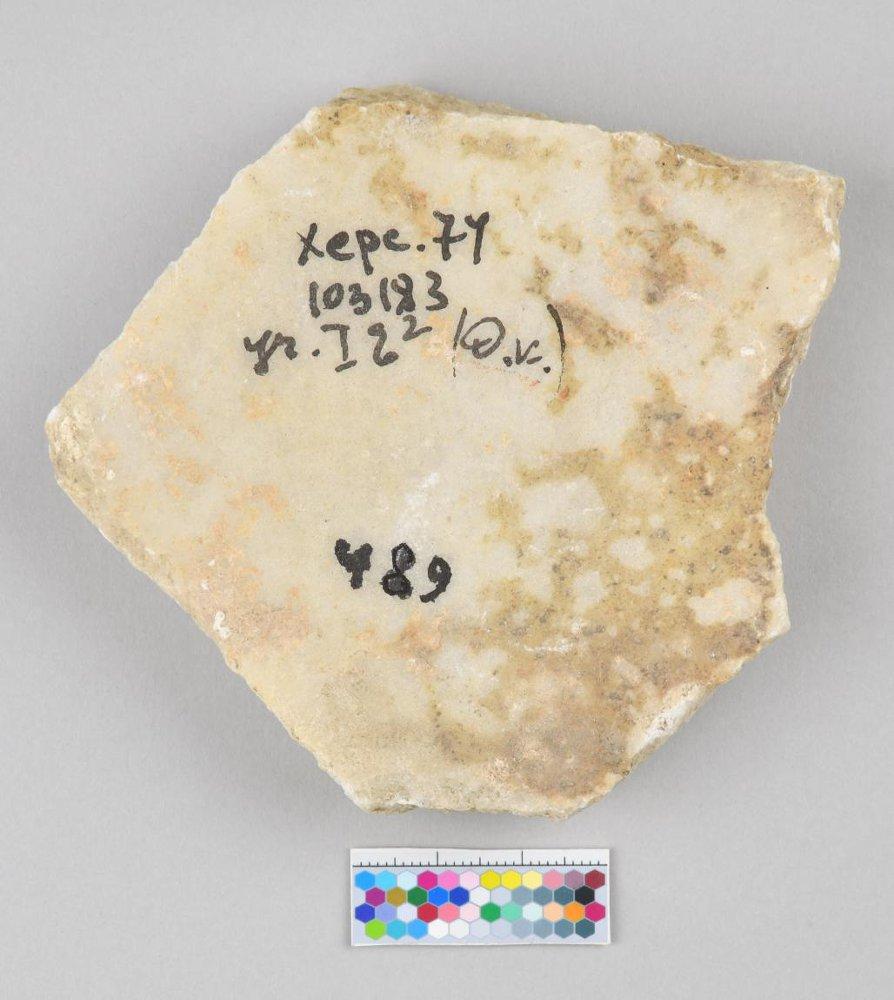 Херс. 74
103183
уг. I 8² (Ю.к.)
489